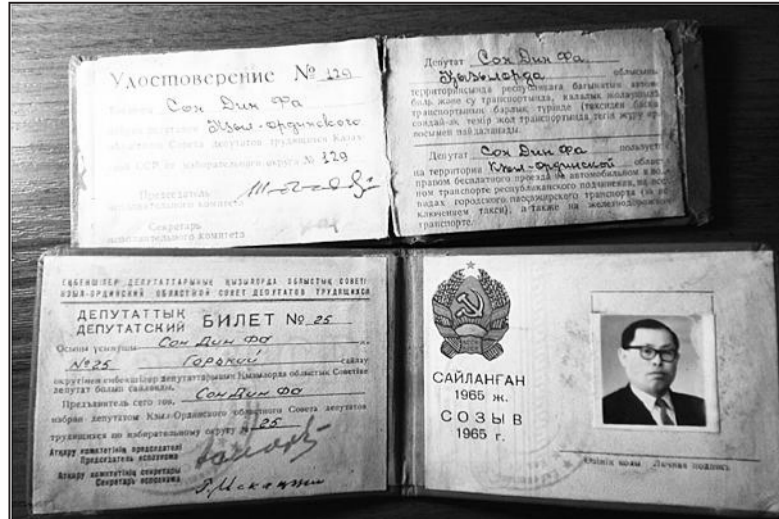 Удостоверение № 129
Сон Дин Фа
избран депутатом Кзыл-ординского
областного Совета депутатов трудящихся Казах-
ской ССР по избирательному округу № 129
Председатель
исполнительного комитета
Секретарь
исполнительного комитета
Депутат Сон Дин Фа
Қызылорда облысының
территориясында республикаға бағынатын автомо-
биль және су транспортында, қалалық жолаушылар
транспортының барлық түрінде (таксиден басқа),
сондай-ақ темір жол транспортында тегін жүру пра-
восымен пайдаланады.
Депутат Сон Дин Фа пользуется
на территории Кзыл-ординской области
правом бесплатного проезда на автомобильном и вод-
ном транспорте республиканского подчинения, на всех
видах городского пассажирского транспорта (за ис-
ключением такси), а также на железнодорожном
транспорте.
ЕҢБЕКШІЛЕР ДЕПУТАТТАРЫНЫҢ ҚЫЗЫЛОРДА ОБЛЫСТЫҚ СОВЕТІ
КЗЫЛ-ОРДИНСКИЙ ОБЛАСТНОЙ СОВЕТ ДЕПУТАТОВ ТРУДЯЩИХСЯ
ДЕПУТАТТЫҚ
ДЕПУТАТСКИЙ БИЛЕТ № 25
Осыны ұсынушы Сон Дин Фа
№25 Горький сайлау
округінен еңбекшілер депутаттарының Қызылорда облыстық Советіне
депутат болып сайланды.
Предъявитель сего тов. Сон Дин Фа
избран депутатом Кзыл-Ординского областного Совета депутатов
трудящихся по избирательному округу № 25
Атқару комитетінің председателі
Председатель исполкома
Атқару комитетінің секретары
Секретарь исполкома
САЙЛАНҒАН
1965 ж.
СОЗЫВ
1965 г.
Өзінің қолы Личная подпись